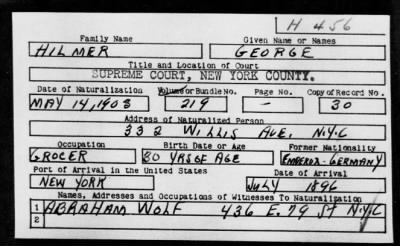 H 456
Family Name Given Name or Names
HILMER GEORGE
Title and Location of Court
SUPREME COURT, NEW YORK COUNTY.
Date of Naturalization Volume or Bundle No. Page No. Copy of Record No.
MAY 14, 1903 219 - 30
Address of Naturalized Person
332 WILLIS AVE. N.Y.C
Occupation Birth Date or Age Former Nationality
GROCER 30 YRS OF AGE EMPEROR-GERMANY
Port of Arrival in the United States Date of Arrival
NEW YORK JULY 1896
Names, Addresses and Occupations of Witnesses To Naturalization
1 ABRAHAM WOLF 436 E. 79 St NYC
2